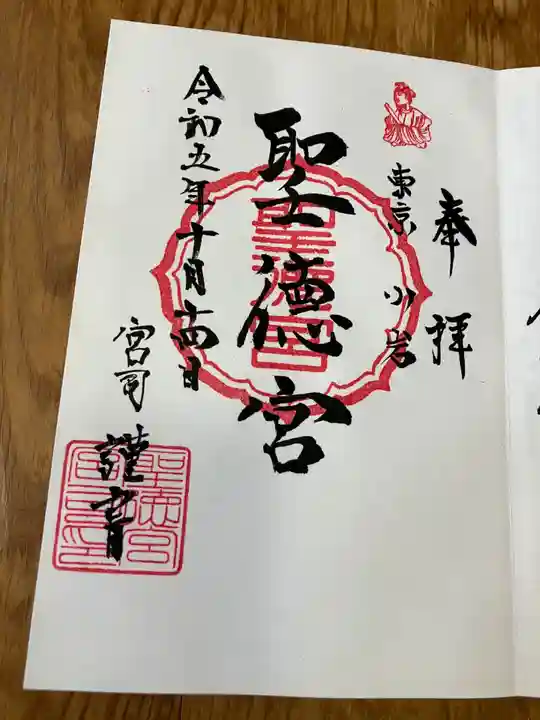 奉拝
東京 小岩
聖徳宮
令和五年十月十四日
宮司 謹書
聖徳宮
聖徳宮
宮司之印